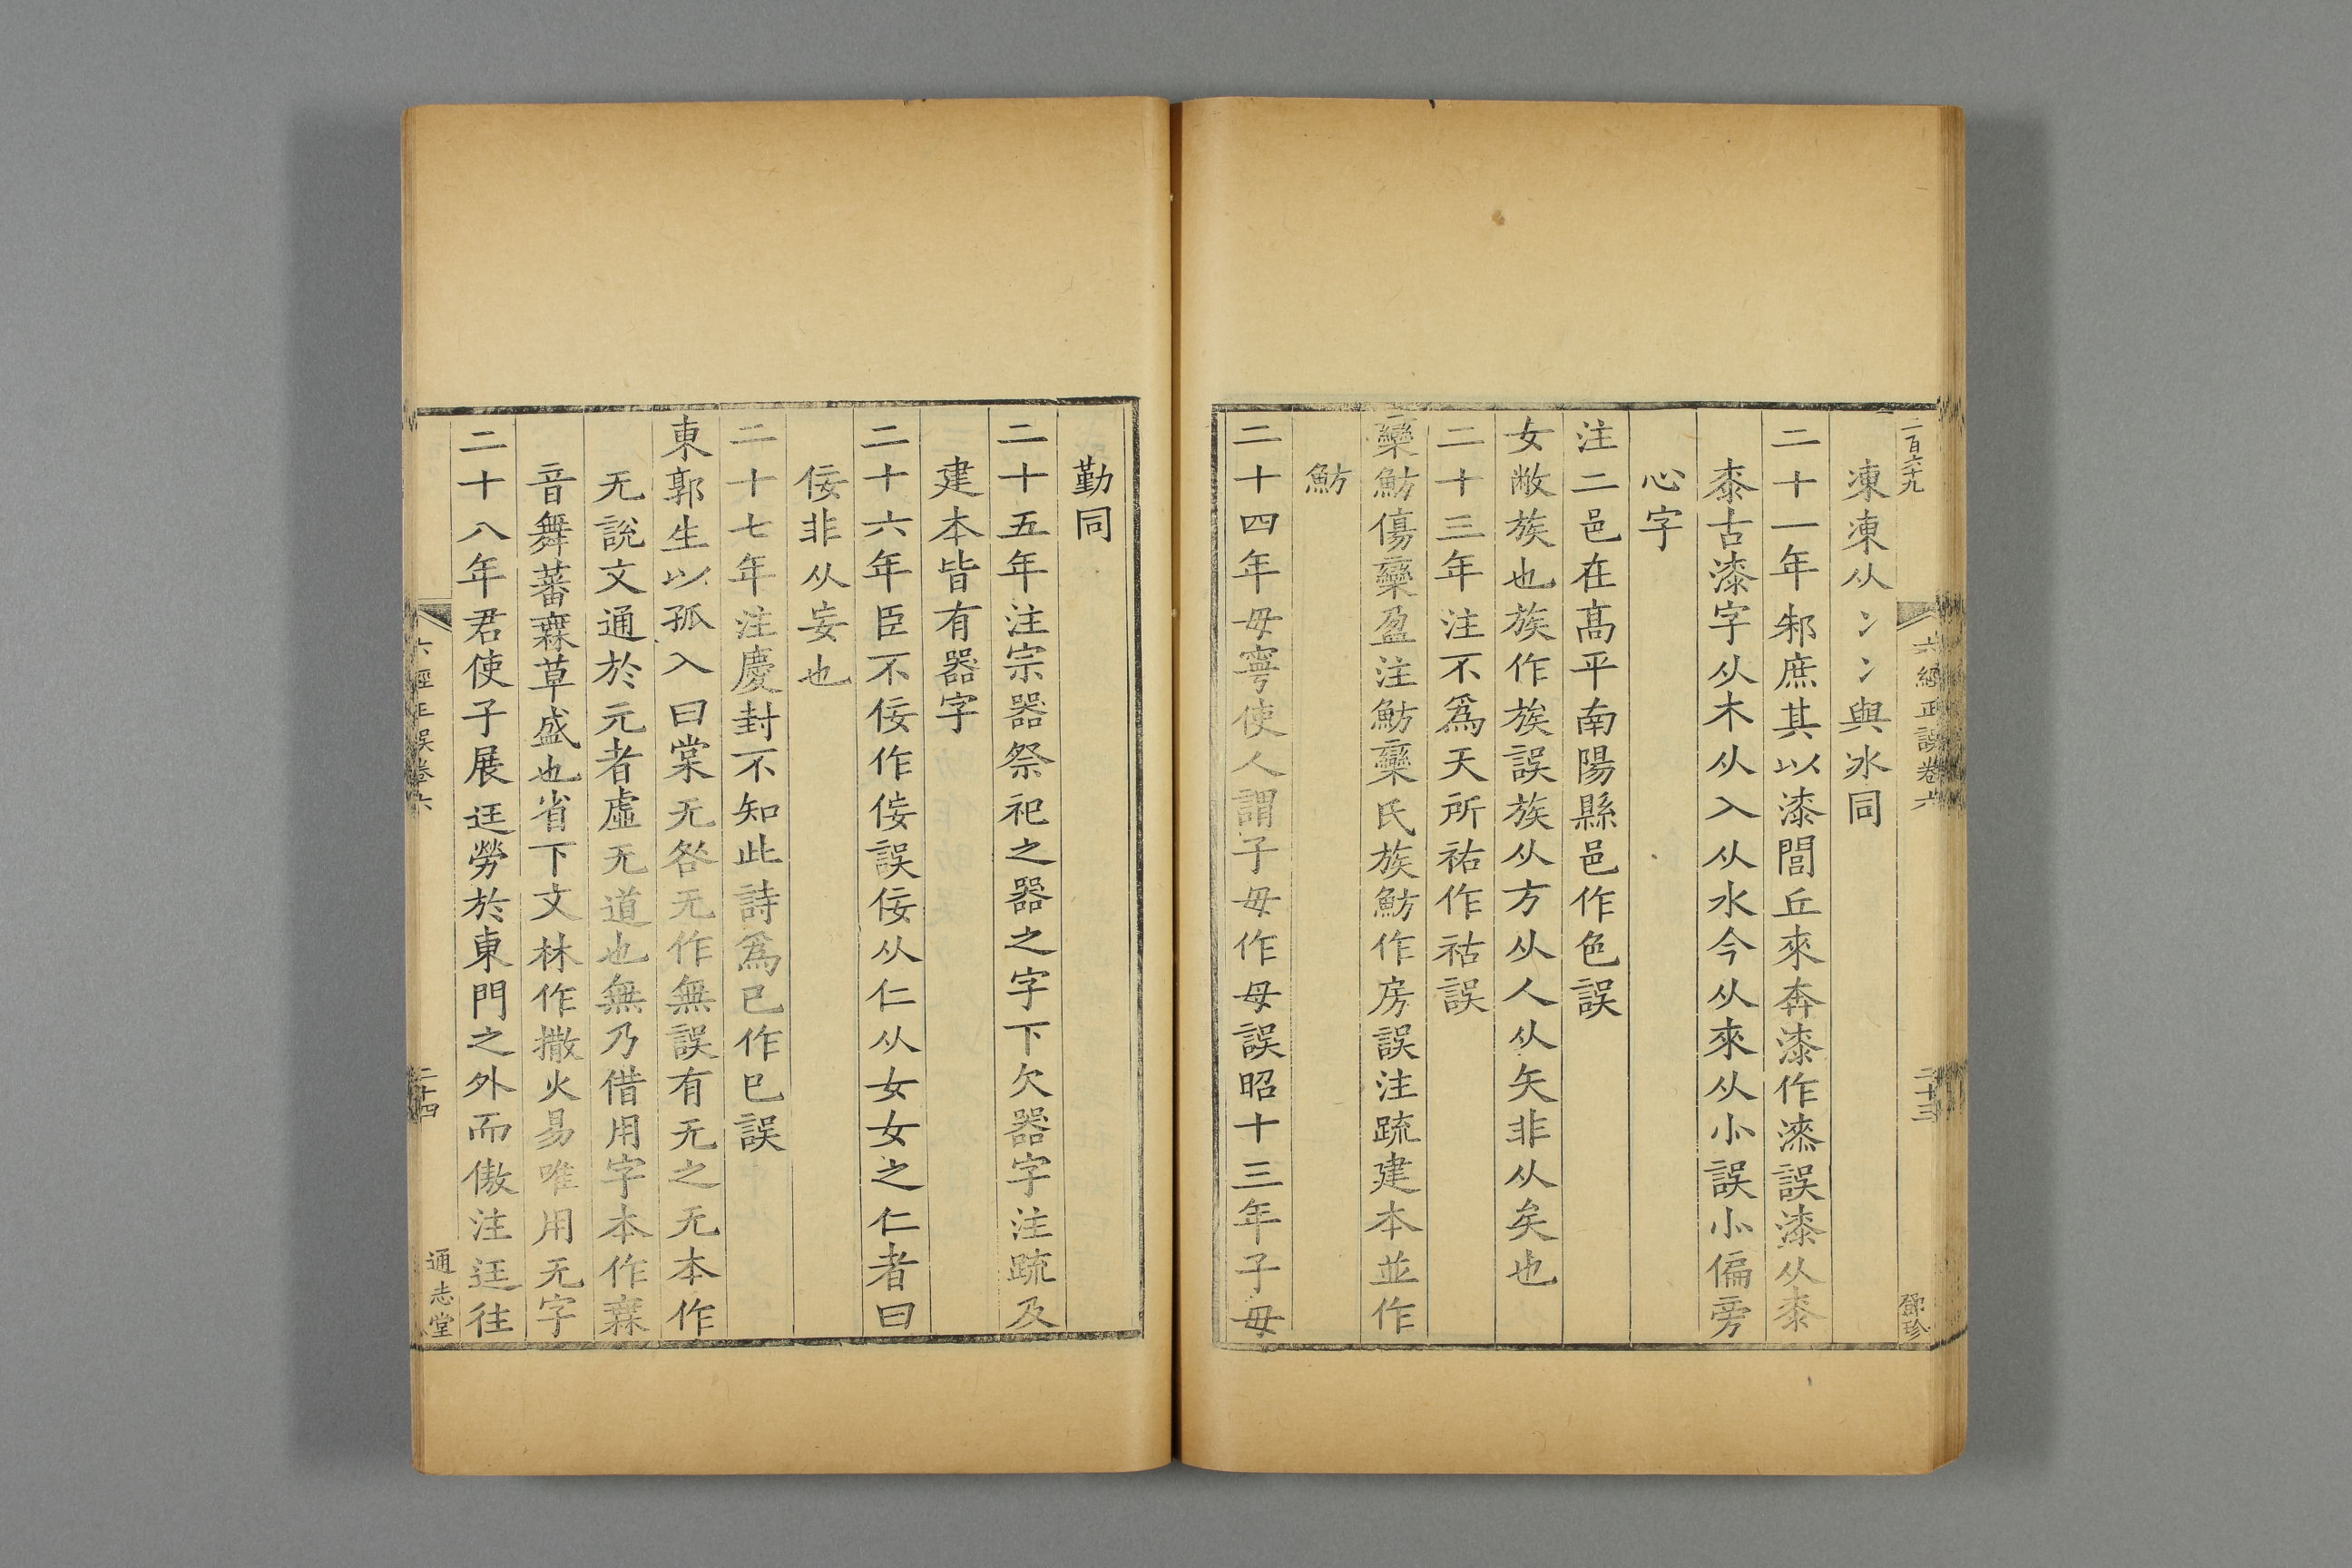 二百六十九
六經正誤卷六
二十三
鄧珍
凍凍从冫冫與冰同
二十一年邾庶其以漆閭丘來奔漆作漆誤漆从桼
桼古漆字从木从入从水今从來从小誤小偏旁
心字
注二邑在髙平南陽縣邑作色誤
女敝族也族作族誤族从方从人从矢非从矣也
二十三年注不爲天所祐作祜誤
欒魴傷欒盈注魴欒氏族魴作房誤注疏建本並作
魴
二十四年毋寧使人謂子毋作母誤昭十三年子毋
勤同
二十五年注宗器祭祀之器之字下欠器字注疏及
建本皆有器字
二十六年臣不佞作佞誤佞从仁从女女之仁者曰
佞非从妄也
二十七年注慶封不知此詩爲己作已誤
東郭生以孤入曰棠无咎无作無誤有无之无本作
无說文通於元者虛无道也無乃借用字本作𣞤
音舞蕃𣞤草盛也省下文林作撒火易唯用无字
二十八年君使子展迋勞於東門之外而傲注迋往
六經正誤卷六
二十四
通志堂